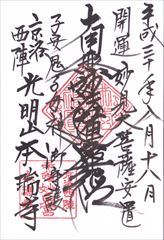 平成三十年八月十八日
開運 妙見大菩薩安置
南無妙法蓮華経
子安鬼子母神
京洛
西陣
光明山本瑞寺